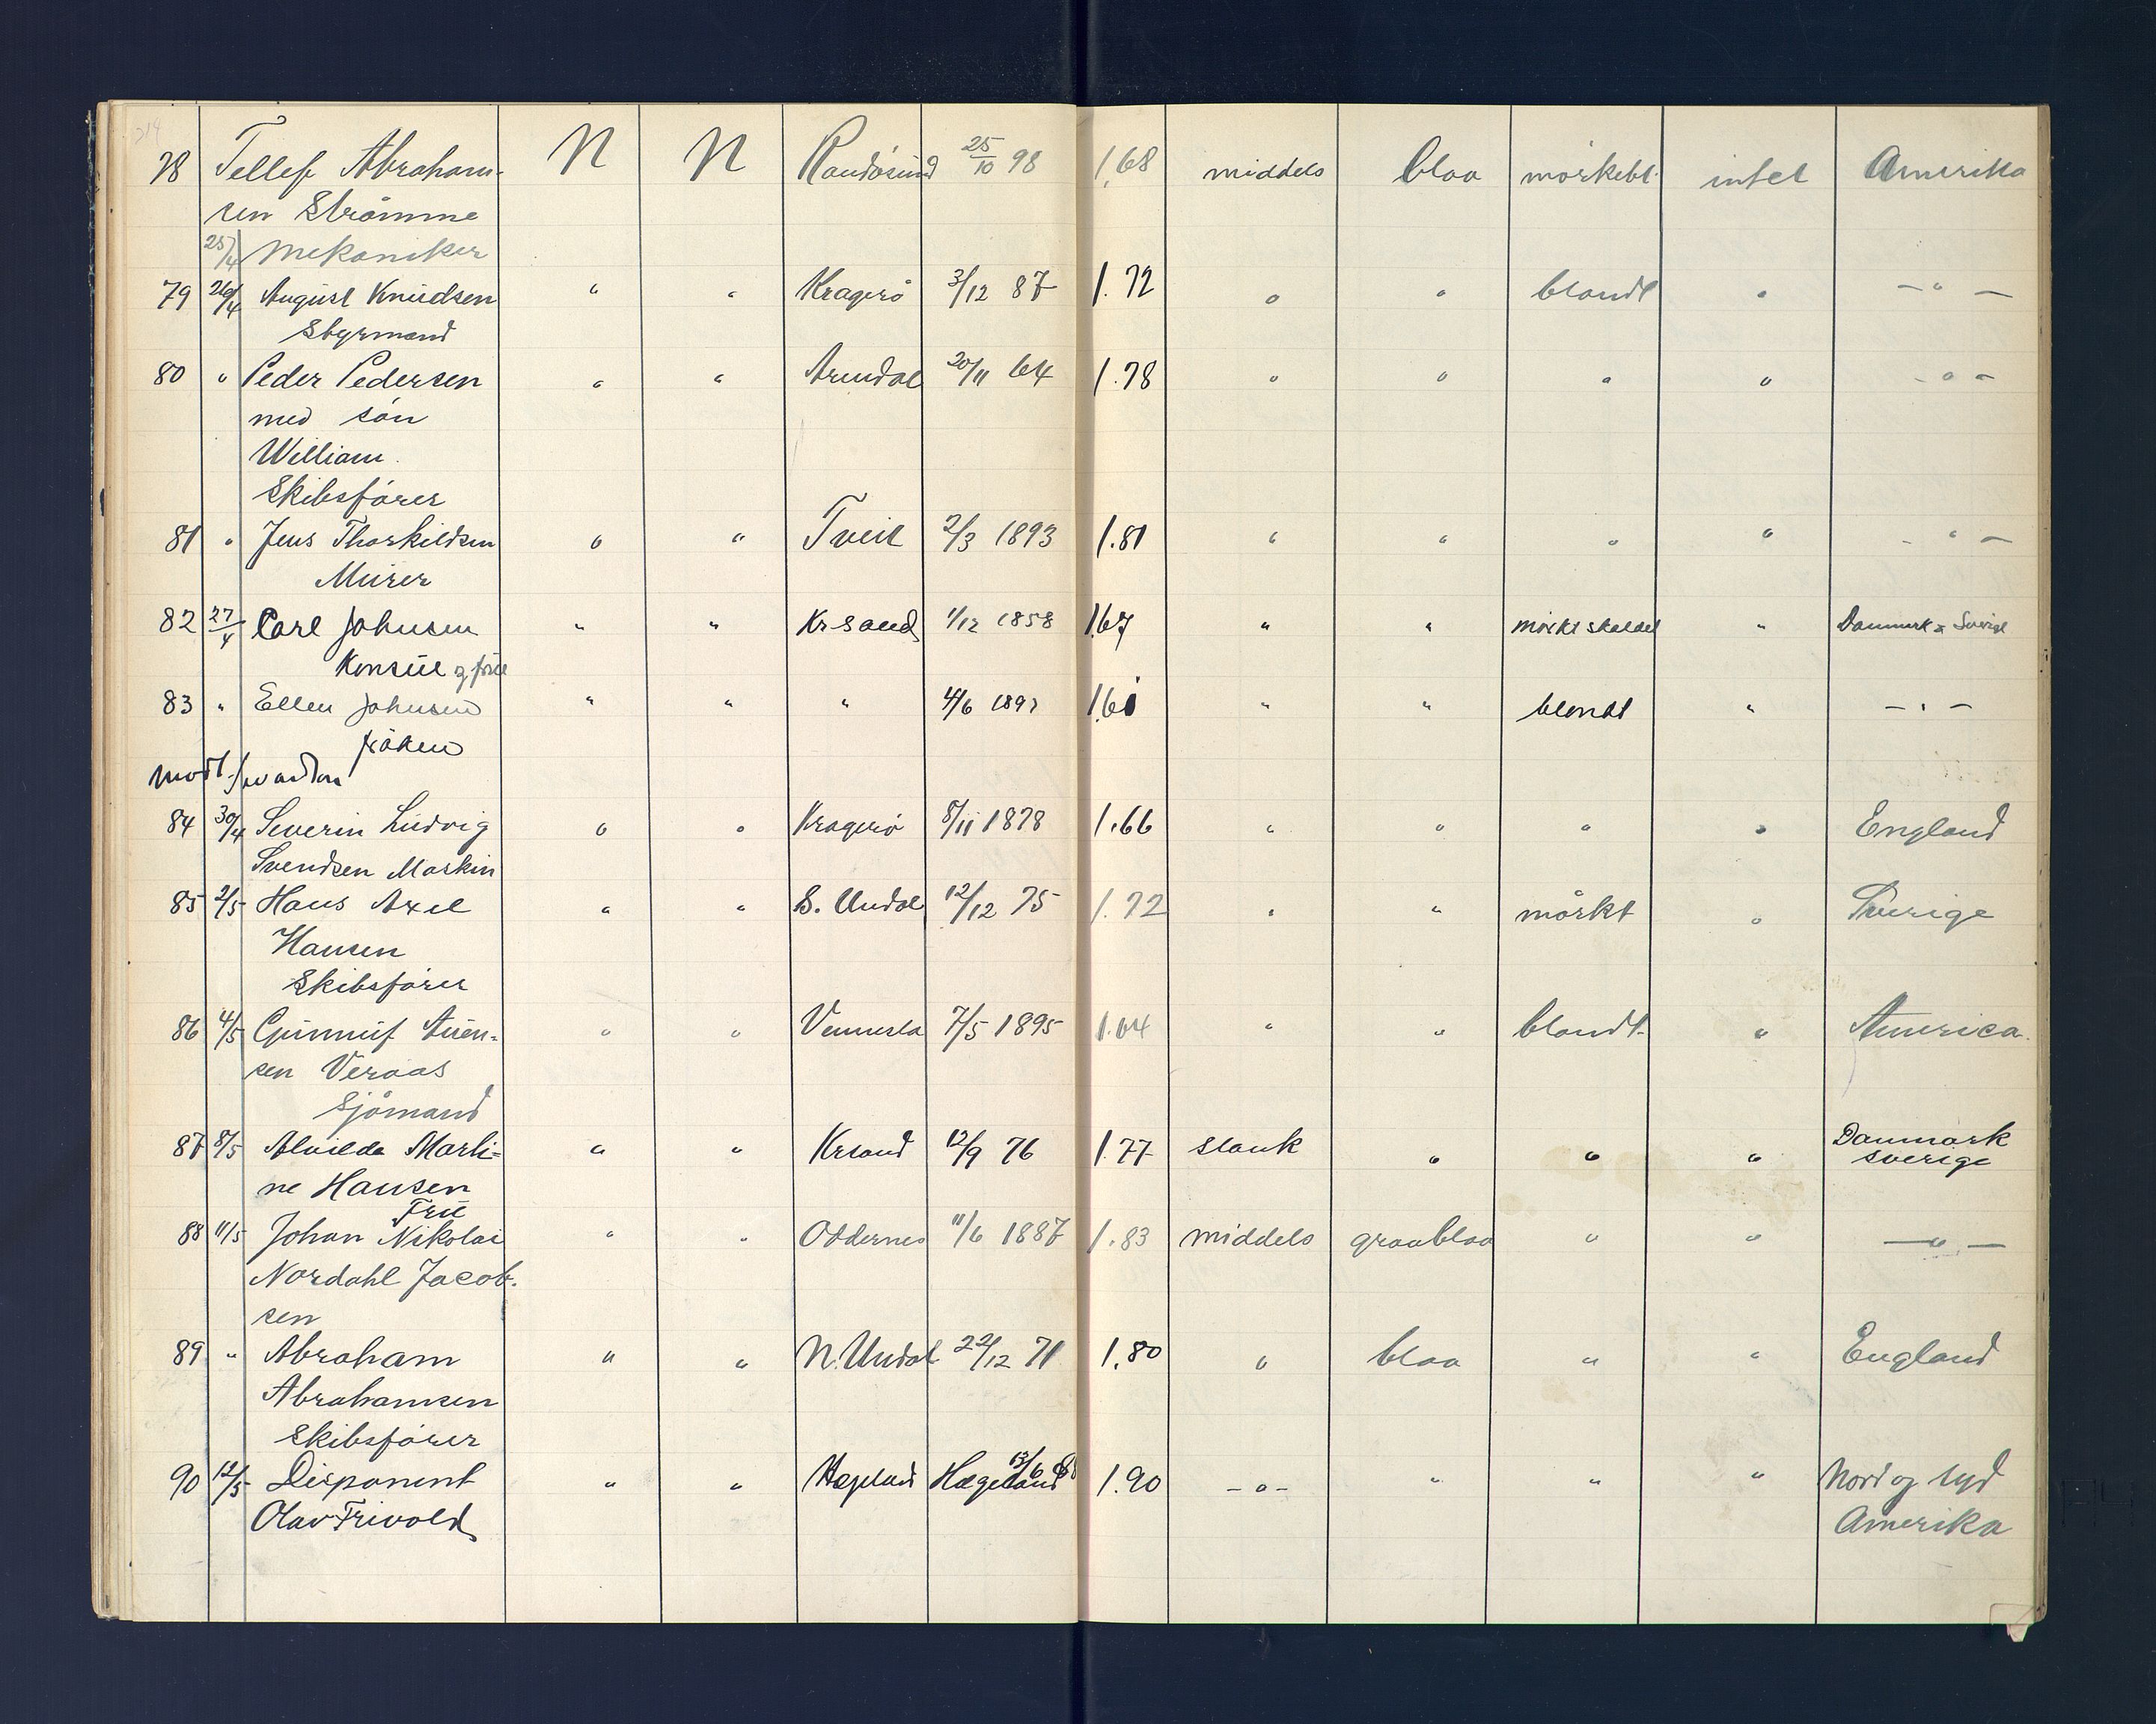 78 Tellef Abraham- N N Randösund 25/10 98 1.68 middels blaa mörkebl. intet Amerika
sen Strömme
25/4 Mekaniker
79 26/4 August Knudsen " " Kragerö 3/12 87 1.72 " " blondt " — " —
Styrmand
80 " Peder Pedersen " " Arendal 20/11 64 1.78 " " " " - " -
med sön
William.
Skibsförer
81 " Jens Thorkildsen " " Tveit 2/3 1893 1.81 " " " " - " -
Murer
82 27/4 Carl Johnsen " " Kr sand 1/12 1858 1.67 " " mörkt skaldet " Danmark & Sverige
Konsul og frue
83 " Ellen Johnsen " " " 4/6 1897 1.61 " " blondt " — " —
fröken
84 30/4 Severin Ludvig " " Kragerö 8/11 1878 1.66 " " " " England
Svendsen Maskin
85 2/5 Hans Axel " " S. Undal 12/12 75 1.72 " " mörkt " Sverige
Hansen
Skibsförer
86 4/5 Gunnuf Auen- " " Vennesla 7/5 1895 1.64 " " blondt " America
sen Veraas
Sjömand
87 8/5 Alvilde Marti= " " Krsand 12/9 76 1.77 slank " " " Danmark
Sverige
ne Hansen
Frue
88 11/5 Johan Nikolai " " Oddernes 11/6 1887 1.83 middels graablaa " " — " —
Nordahl Jacob-
sen
89 " Abraham " " N. Undal 22/12 71 1.80 " blaa " " England
Abrahamsen
Skibsförer
90 12/5 Disponent " " Hægeland Hægeland 13/6 1.90 - " - " " " Nord og Syd
Olav Trivold Amerika